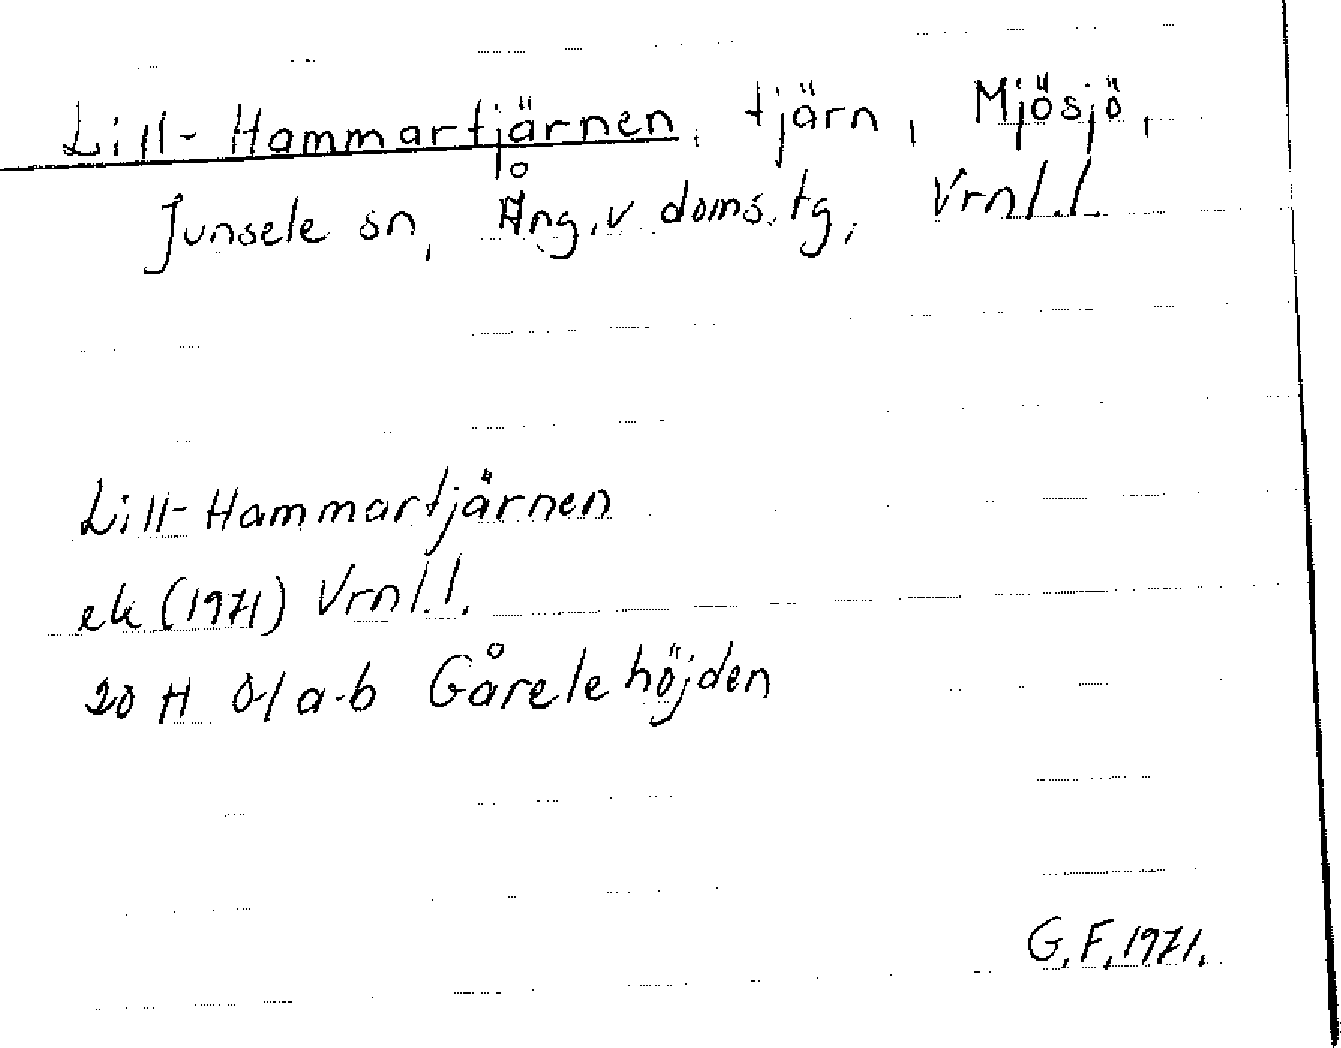 Lill-Hammartjärnen, tjärn, Mjösjö,
Junsele sn, Ång.v doms.tg, Vrnl.l.
Lill-Hammartjärnen
ek (1971) Vrnl.l.
20 H 0-1 a-b Gårelehöjden
G.F. 1971.